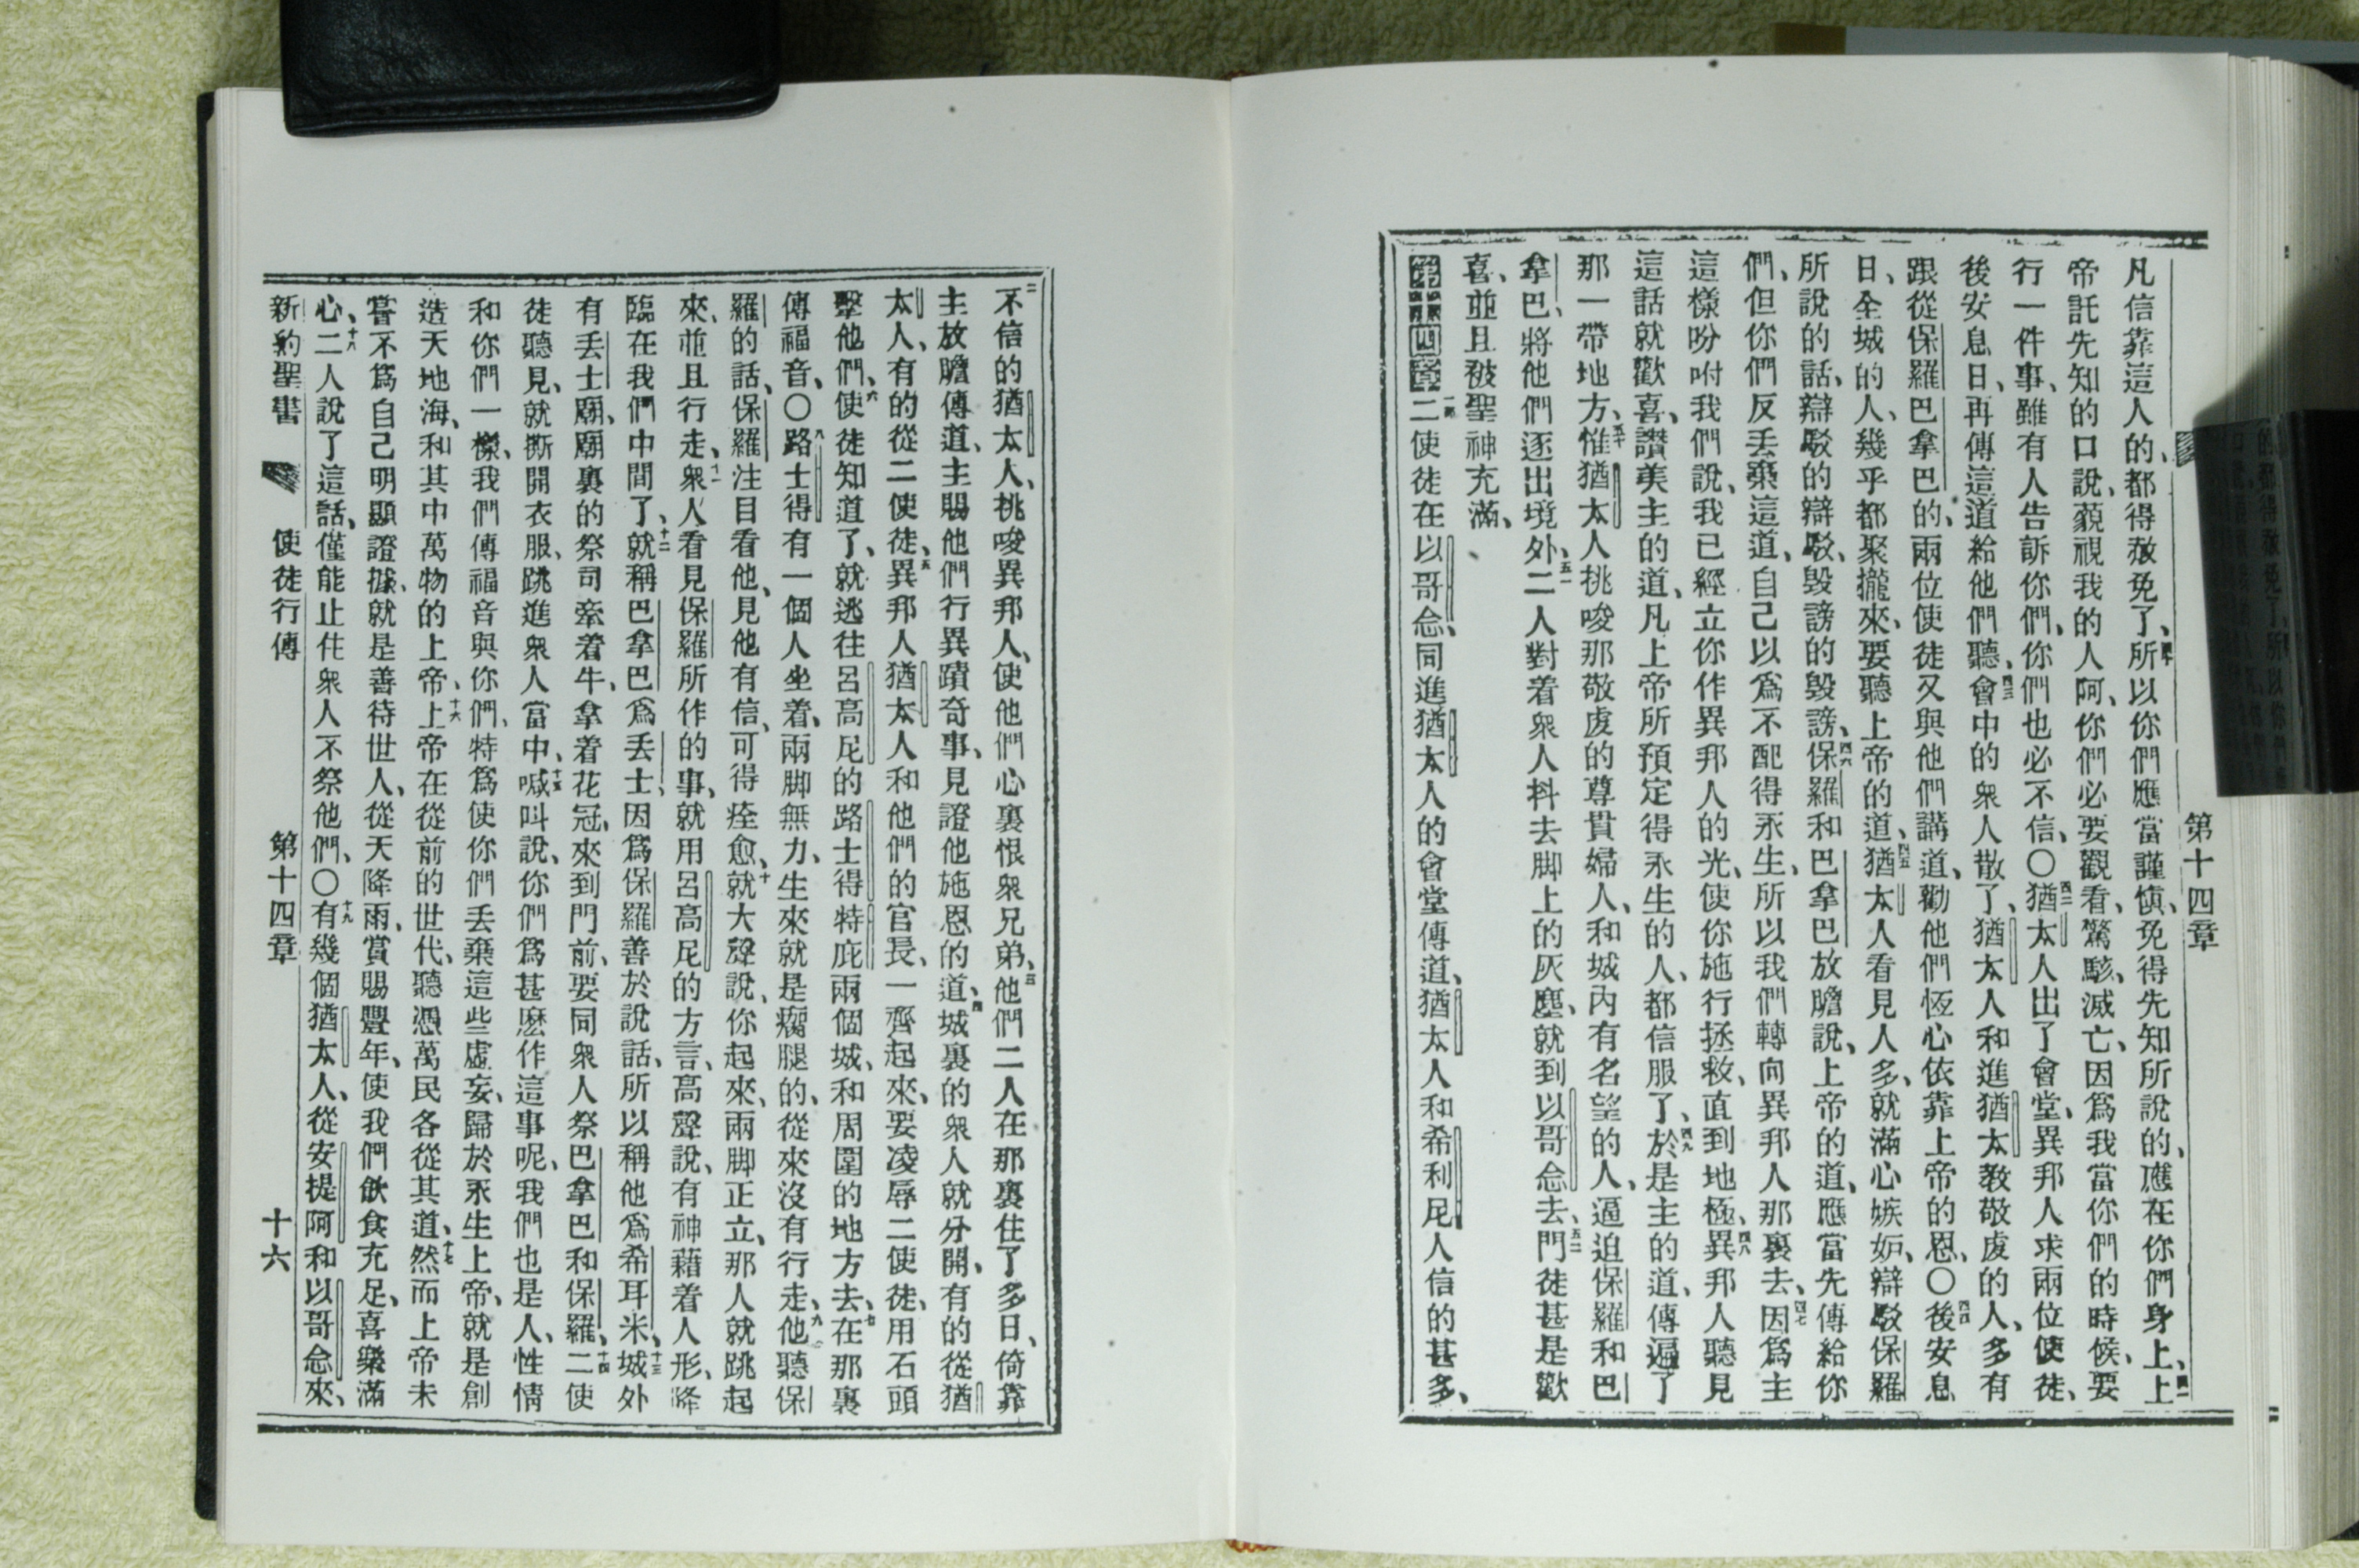 第十四章
凡信靠這人的、都得赦免了、四十所以你們應當謹慎、免得先知所說的、應在你們身上、四一上
帝託先知的口說、藐視我的人阿、你們必要觀看、驚駭、滅亡、因爲我當你們的時候、要
行一件事、雖有人告訴你們、你們也必不信、〇四二猶太人出了會堂、異邦人求兩位使徒、
後安息日、再傳這道給他們聽、四三會中的衆人散了、猶太人和進猶太敎敬虔的人、多有
跟從保羅巴拿巴的、兩位使徒又與他們講道、勸他們恆心依靠上帝的恩、〇四四後安息
日、全城的人、幾乎都聚攏來、要聽上帝的道、四五猶太人看見人多、就滿心嫉妒、辯駁保羅
所說的話、辯駁的辯駁、毀謗的毀謗、四六保羅和巴拿巴放膽說、上帝的道、應當先傳給你
們、但你們反丟棄這道、自己以爲不配得永生、所以我們轉向異邦人那裏去、四七因爲主
這樣吩咐我們說、我已經立你作異邦人的光、使你施行拯救、直到地極、四八異邦人聽見
這話就歡喜、讚美主的道、凡上帝所預定得永生的人、都信服了、四九於是主的道、傳遍了
那一帶地方、五十惟猶太人挑唆那敬虔的尊貴婦人、和城內有名望的人、逼迫保羅和巴
拿巴、將他們逐出境外、五一二人對着衆人抖去脚上的灰塵、就到以哥念去、五二門徒甚是歡
喜、並且被聖神充滿、
第十四章一節二使徒在以哥念、同進猶太人的會堂傳道、猶太人和希利尼人信的甚多、
二不信的猶太人、挑唆異邦人、使他們心裏恨衆兄弟、三他們二人在那裏住了多日、倚靠
主放膽傳道、主賜他們行異蹟奇事、見證他施恩的道、四城裏的衆人就分開、有的從猶
太人、有的從二使徒、五異邦人猶太人和他們的官長、一齊起來、要凌辱二使徒、用石頭
擊他們、六使徒知道了、就逃往呂高尼的路士得特庇兩個城、和周圍的地方去、七在那裏
傳福音、〇八路士得有一個人坐着、兩脚無力、生來就是瘸腿的、從來沒有行走、九他聽保
羅的話、保羅注目看他、見他有信、可得痊愈、十就大聲說、你起來、兩脚正立、那人就跳起
來、並且行走、十一衆人看見保羅所作的事、就用呂高尼的方言、高聲說、有神藉着人形、降
臨在我們中間了、十二就稱巴拿巴爲丟士、因爲保羅善於說話、所以稱他爲希耳米、十三城外
有丟士廟、廟裏的祭司牽着牛、拿着花冠、來到門前、要同衆人祭巴拿巴和保羅、十四二使
徒聽見、就撕開衣服、跳進衆人當中、十五喊叫說、你們爲甚麽作這事呢、我們也是人、性情
和你們一樣、我們傳福音與你們、特爲使你們丟棄這些虛妄、歸於永生上帝、就是創
造天地海、和其中萬物的上帝、十六上帝在從前的世代、聽憑萬民各從其道、十七然而上帝未
嘗不爲自己明顯證據、就是善待世人、從天降雨、賞賜豐年、使我們飲食充足、喜樂滿
心、十八二人說了這話、僅能止住衆人不祭他們、〇十九有幾個猶太人、從安提阿和以哥念來、
新約聖書 使徒行傳 第十四章 十六